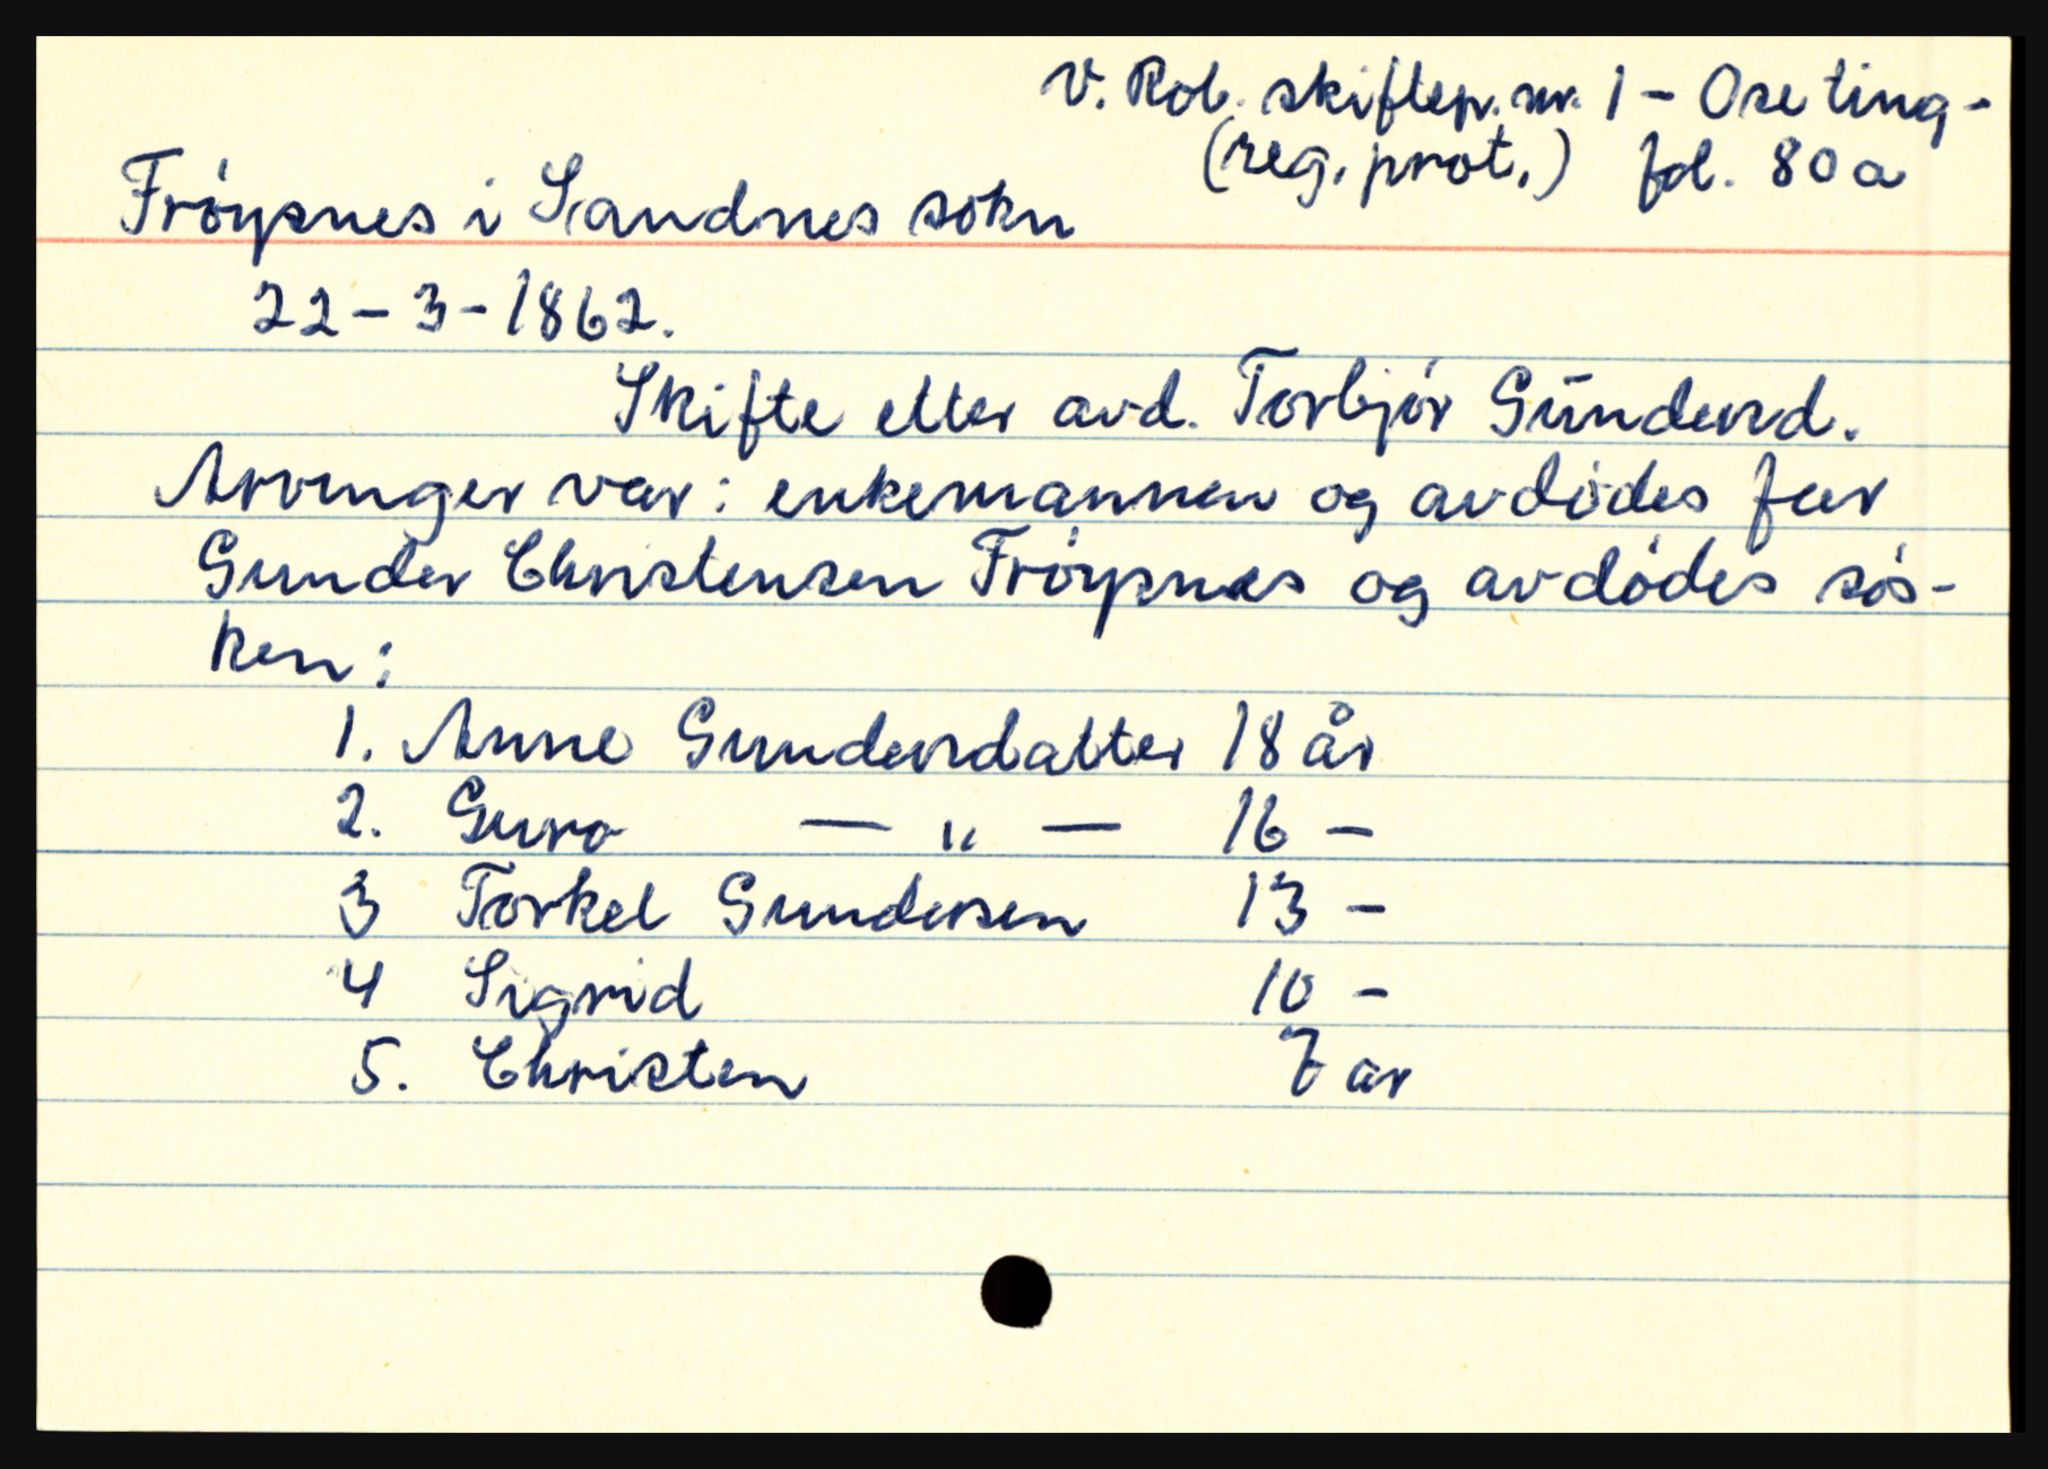 V. Rob. skiftep. nr. 1 - Ose ting -
(reg. prot.) fol. 80 a
Frøysnes i Sandnes sokn
22 - 3 - 1862.
Skifte etter avd. Torbjør Gŭndersd.
Arvinger var: enkemannen og avdødes far
Gunder Christensen Frøysnes og avdødes søs-
ken:
1. Anne Gundersdatter 18 år
2. Guro — " — 16 -
3 Torkel Gundersen 13 -
4 Sigrid 10 -
5. Christen 7 år